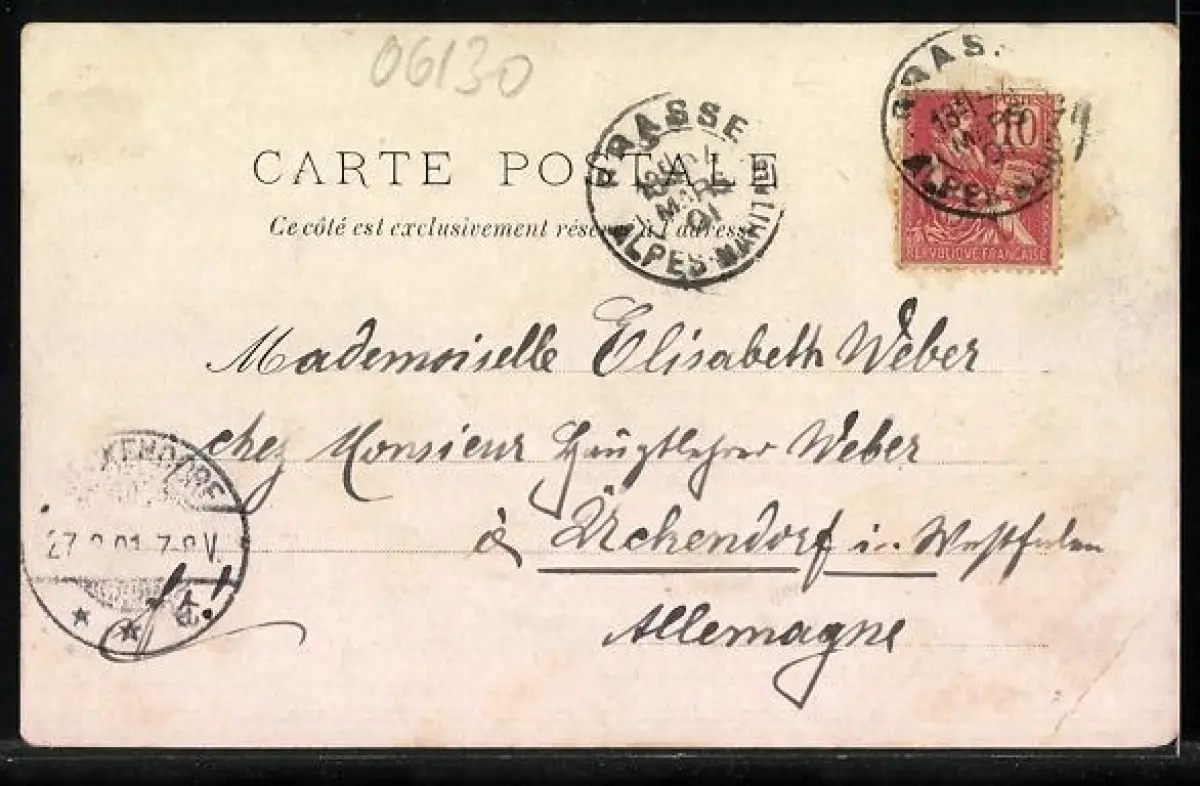 06130
CARTE POSTALE
Ce côté est exclusivement réservé à l'adresse
GRASSE
MARS
01
ALPES-MARITIMES
GRAS
ALPES-MARIT
10
REPUBLIQUE FRANÇAISE
Mademoiselle Elisabeth Weber
chez Monsieur Hauptlehrer Weber
à Ückendorf in Westfalen
Allemagne
KENDORF
27.3.01.7-8V.